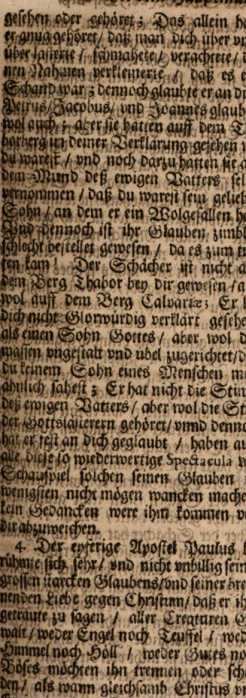 gesehen oder gehöret; Das allein h
er gnug gehöret / daß man dich über
über lästerte / schmähete / verachtete / d
nen Nahmen verkleinerte / daß es
Schand war; dennoch glaubte er an di
Petrus / Jacobus / vnd Joannes glaub
wol auch; aber sie hatten auff dem T
in deiner Verklärung gesehen
du warest / vnd noch darzu hatten sie a
dem Mund deß ewigen Vatters sel
vernommen / daß du warest sein gelieb
Sohn / an dem er ein Wolgefallen h
Vnd dennoch ist ihr Glauben zimbl
schlecht bestellet gewesen / da es zum
fen kam! Der Schächer ist nicht a
dem Berg Thabor bey dir gewesen / a
wol auff dem Berg Calvariæ; Er
dich nicht Glorwürdig verklärt gesehe
als einen Sohn Gottes / aber wol d
massen vngestalt vnd übel zugerichtet / d
du keinem Sohn eines Menschen m
ähnlich sahest; Er hat nicht die Stim
deß ewigen Vatters / aber wol die St
der Gottslästerern gehöret / vnnd denno
hat er fest an dich geglaubt / haben au
alle diese so wiederwertige Spectacula v
Schauspiel solchen seinen Glauben
wenigsten nicht mögen wancken mache
kein Gedancken were ihm kommen v
dir abzuweichen.
4. Der eyferige Apostel Paulus
rühmte sich sehr / vnd nicht vnbillig sein
grossen starcken Glaubens / vnd seiner bre
nenden Liebe gegen Christum / daß er ih
getraute zu sagen / aller Creaturen G
walt / weder Engel noch Teuffel / wede
Himmel noch Höll / weder Gutes no
Böses möchten ihn trennen oder sch
den / als wann gleichsamb Christus